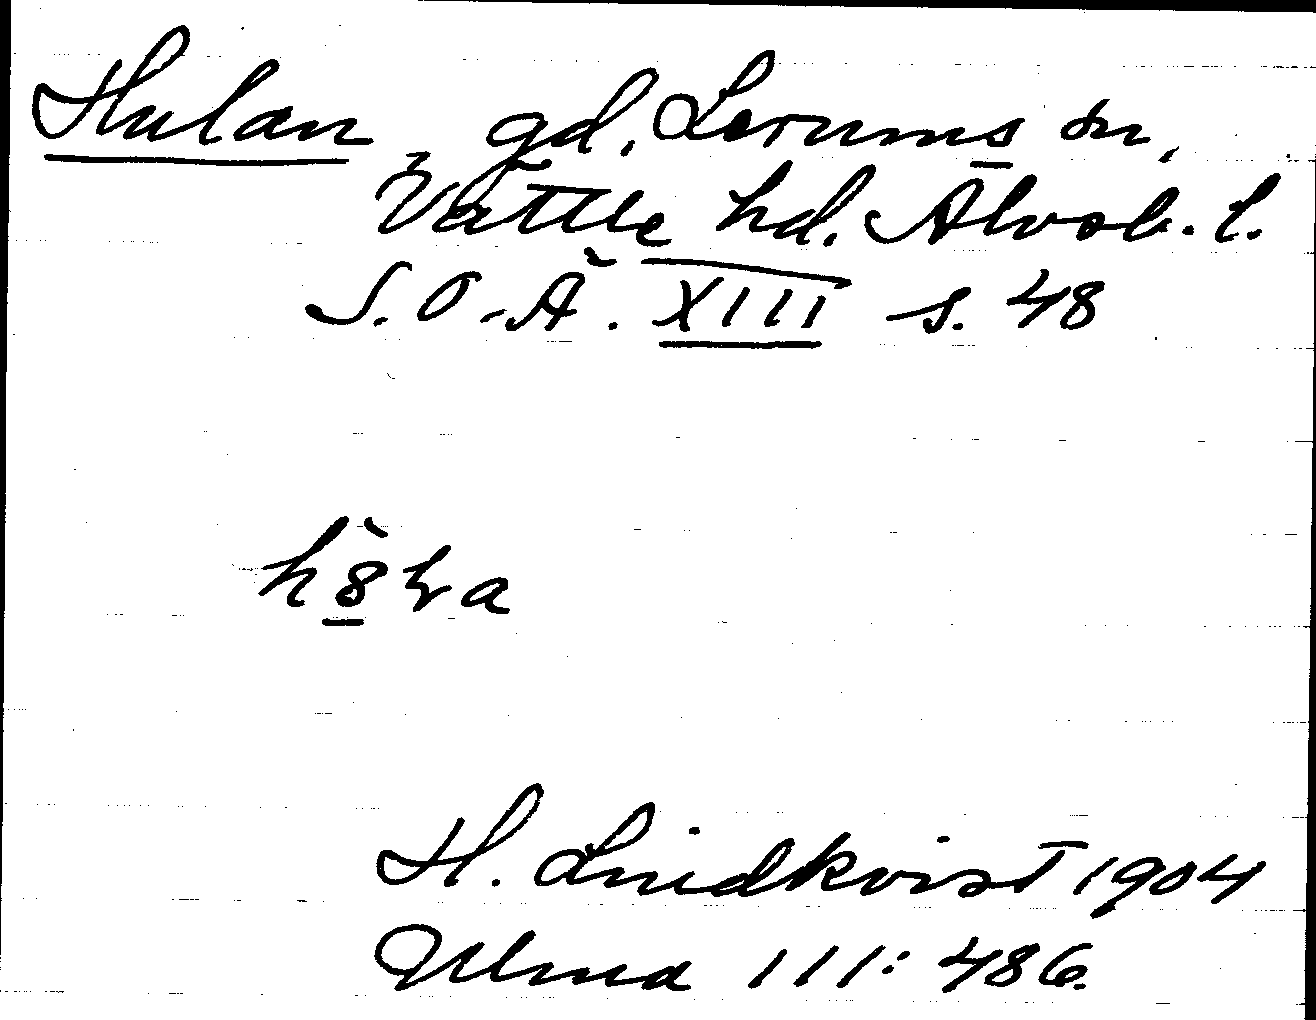 Hulan, gd. Lerums sn,
Vättle hd. Älvsb. l.
S.O.Ä. XIII s. 48
H. Lindkvist 1904
Ulma 111: 486.